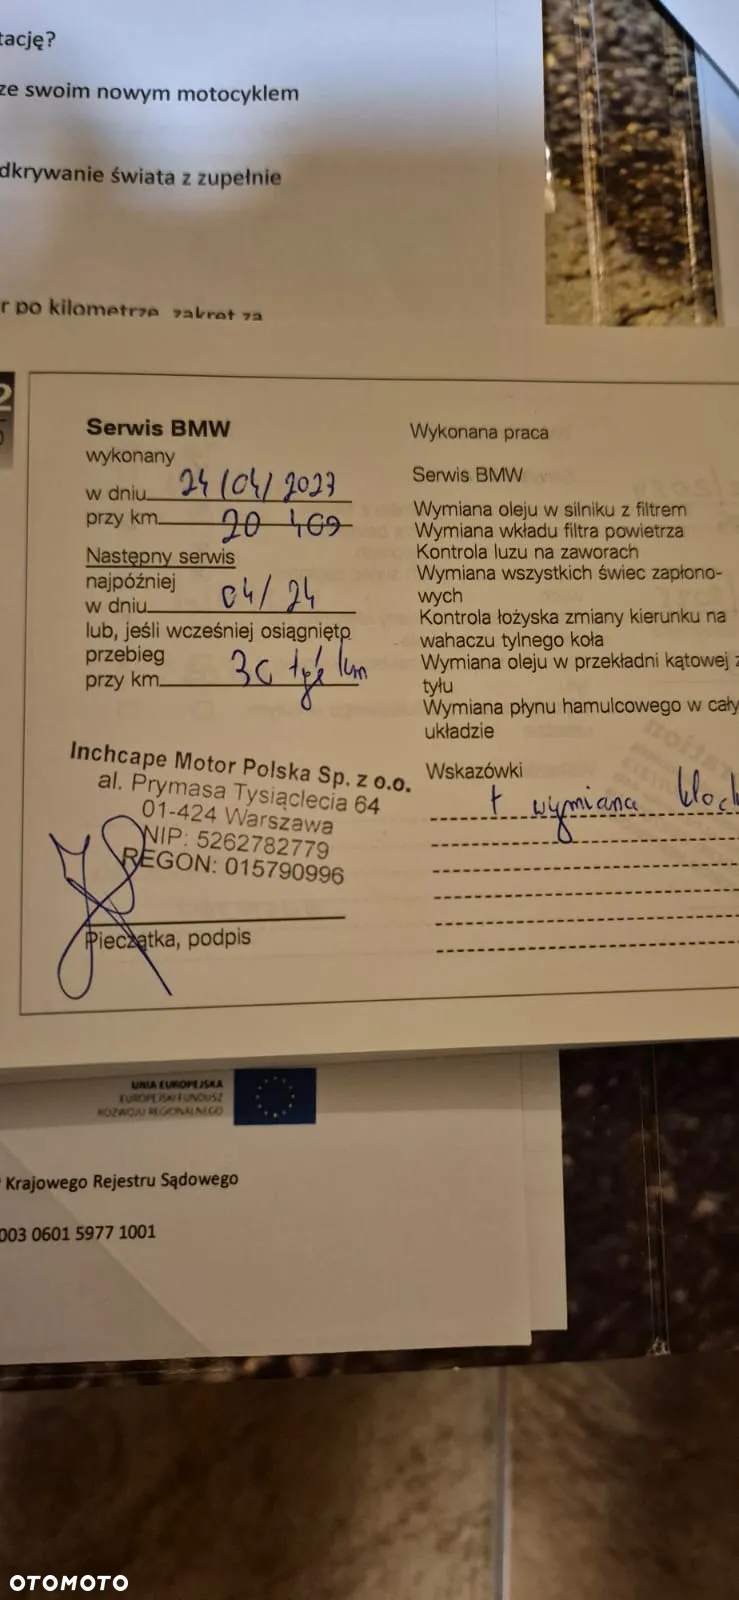 tację?
ze swoim nowym motocyklem
dkrywanie świata z zupełnie
r po kilometrze, zakręt za
2
Serwis BMW
wykonany
w dniu 24/04/2023
przy km 20 409
Następny serwis
najpóźniej
w dniu 04/24
lub, jeśli wcześniej osiągnięto
przebieg
przy km 30 tyś km
Inchcape Motor Polska Sp. z o.o.
al. Prymasa Tysiąclecia 64
01-424 Warszawa
NIP: 5262782779
REGON: 015790996
Pieczątka, podpis
Wykonana praca
Serwis BMW
Wymiana oleju w silniku z filtrem
Wymiana wkładu filtra powietrza
Kontrola luzu na zaworach
Wymiana wszystkich świec zapłono-
wych
Kontrola łożyska zmiany kierunku na
wahaczu tylnego koła
Wymiana oleju w przekładni kątowej z
tyłu
Wymiana płynu hamulcowego w cały
układzie
Wskazówki
+ wymiana klock
UNIA EUROPEJSKA
EUROPEJSKI FUNDUSZ
ROZWOJU REGIONALNEGO
Krajowego Rejestru Sądowego
003 0601 5977 1001
OTOMOTO